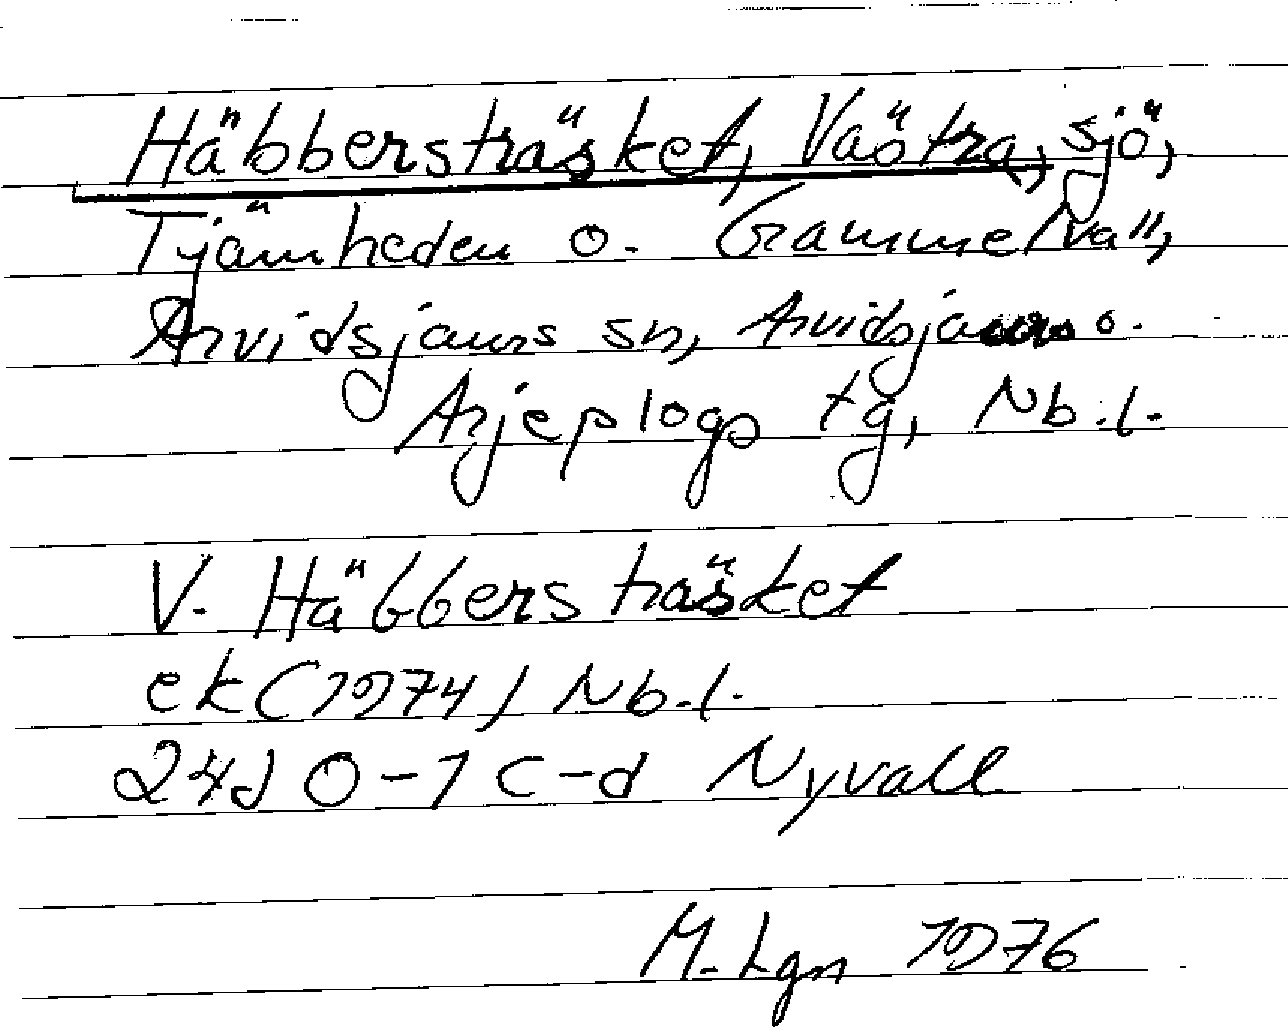 Häbbersträsket, Västra, sjö,
Tjämheden o. Gammelva",
Arvidsjaurs sn, Arvidsjaurs o.
Arjeplogs tg, Nb.l.
V. Häbbersträsket
ek (1974) Nb.l.
24J 0-1 c-d Nyvall
M. Lgn 1976